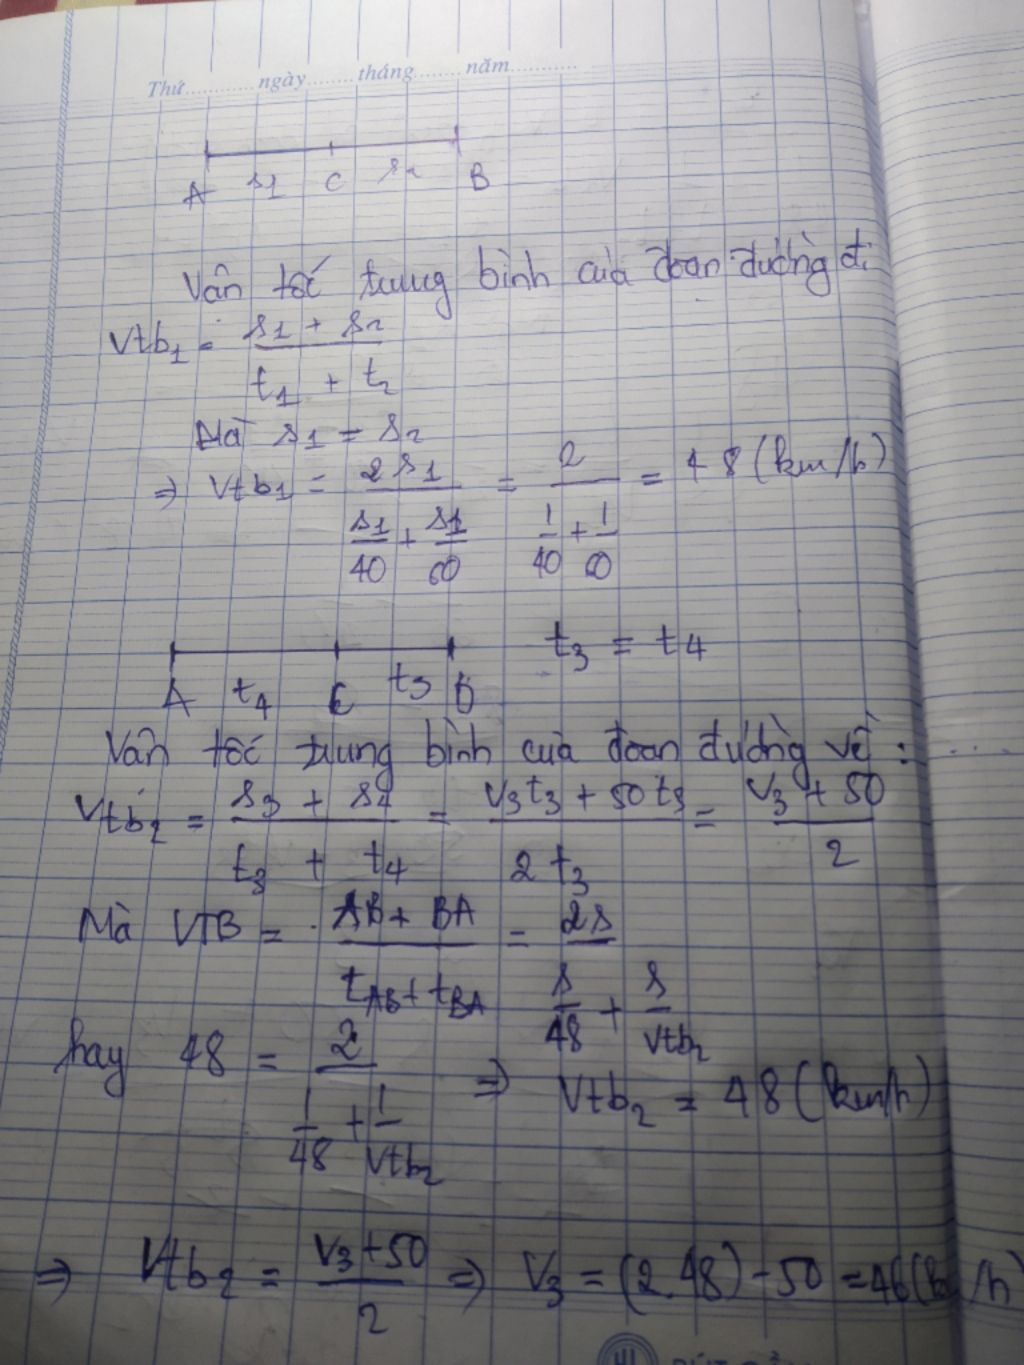 Thứ............ngày........tháng........năm............
A s1 C s2 B
Vân tốc trung bình của đoạn đường đi
Vtb1 = s1 + s2 / t1 + t2
Mà s1 = s2
=> Vtb1 = 2s1 / s1/40 + s1/60 = 2 / 1/40 + 1/60 = 48 (km/h)
t3 = t4
A t4 C t3 B
Vân tốc trung bình của đoạn đường về : ....
Vtb2 = s3 + s4 / t3 + t4 = V3t3 + 50t3 / 2t3 = V3 + 50 / 2
Mà VTB = AB + BA / tAB + tBA = 2s / s/48 + s/Vtb2
hay 48 = 2 / 1/48 + 1/Vtb2 => Vtb2 = 48 (km/h)
=> Vtb2 = V3 + 50 / 2 => V3 = (2.48) - 50 = 46 (km/h)